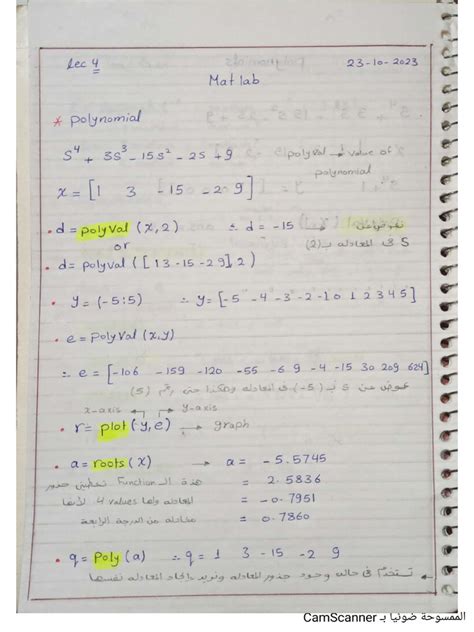 Lec 4
23-10-2023
Matlab
* polynomial
S⁴ + 3S³ - 15S² - 2S + 9
polyval → value of
polynomial
x = [1 3 -15 -2 9]
• d = polyval (x,2) ∴ d = -15
or
S في المعادلة ب(2)
• d = polyval ([1 3 -15 -2 9], 2)
• y = (-5:5) ∴ y = [-5 -4 -3 -2 -1 0 1 2 3 4 5]
• e = polyval (x,y)
∴ e = [-106 -159 -120 -55 -6 9 -4 -15 30 209 624]
عن S ب (-5) في المعادلة وهكذا حتى رقم (5)
x-axis y-axis
• r = plot (y,e) → graph
• a = roots (x) → a = -5.5745
= 2.5836
= -0.7951
= 0.7860
هذه الـ Function تعطيني جذور
المعادلة ولها 4 values لأنها
معادلة من الدرجة الرابعة
• q = poly (a) ∴ q = 1 3 -15 -2 9
تستخدم في حالة وجود جذور المعادلة ونريد إيجاد المعادلة نفسها
الممسوحة ضوئيا بـ CamScanner